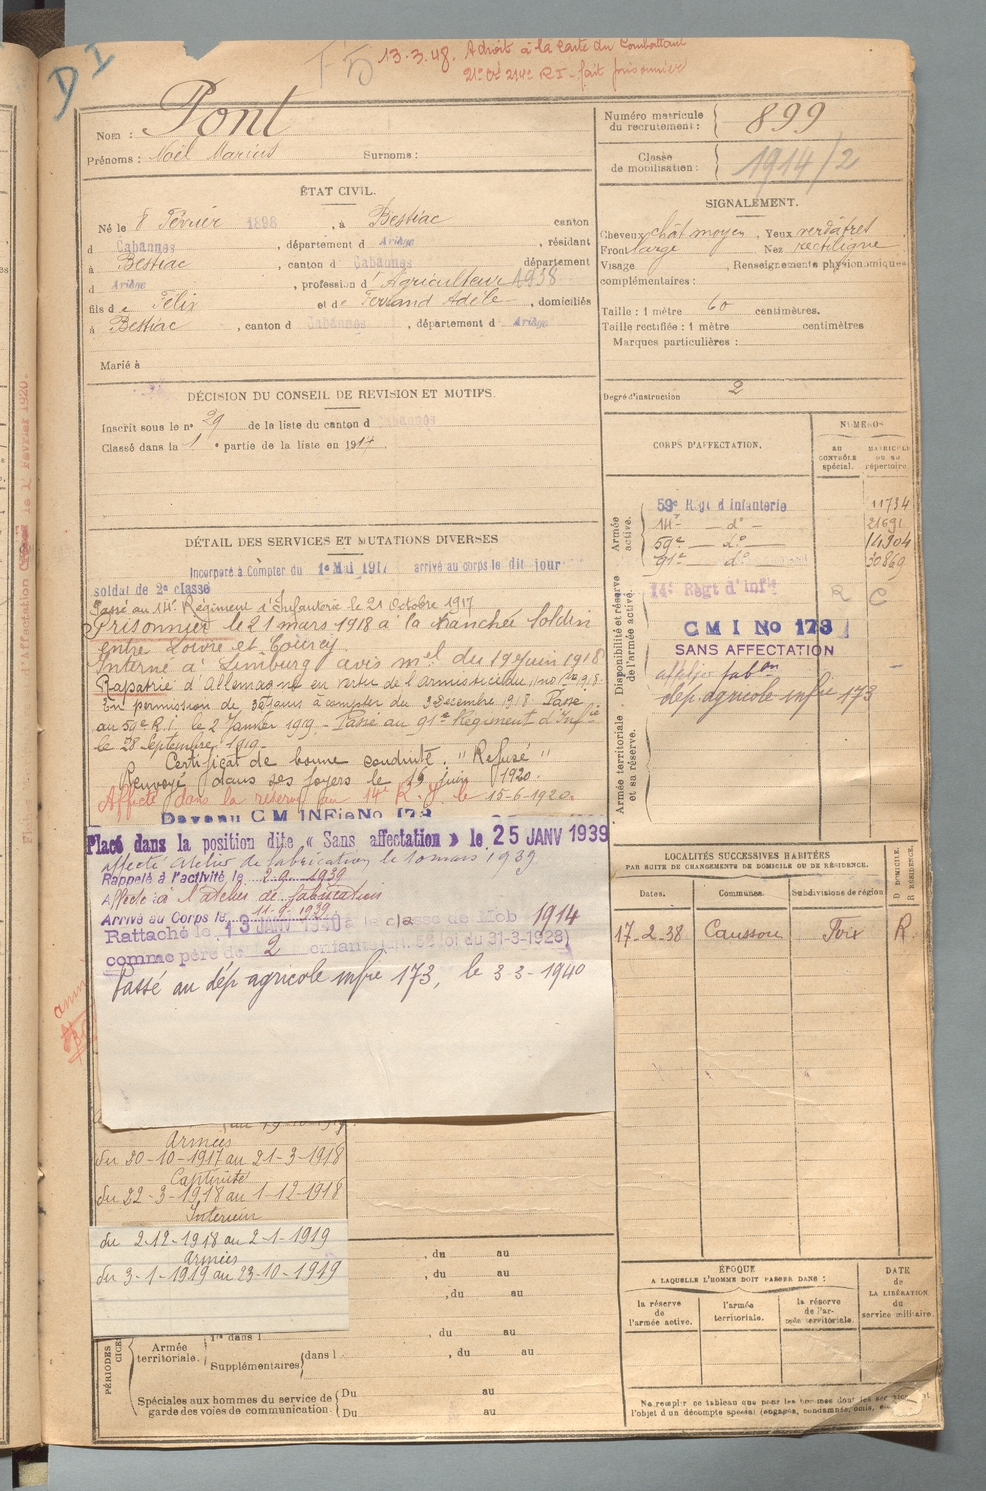 D I
13-3-48. A droit à la carte du Combattant
21e Cie 214e RI - fait prisonnier
Nom : Pont
Prénoms : Noël Marius Surnoms :
Numéro matricule du recrutement : 899
Classe de mobilisation : 1914/2
ÉTAT CIVIL.
Né le 8 Février 1898, à Bestiac canton
d Cabannes, département d Ariège, résidant
à Bestiac, canton d Cabannes département
d Ariège, profession d'Agriculteur 1938
fils de Félix et de Ferrand Adèle, domiciliés
à Bestiac, canton d Cabannes, département d Ariège
Marié à
SIGNALEMENT.
Cheveux chât moyen, Yeux verdâtres
Front large Nez rectiligne
Visage , Renseignements physionomiques
complémentaires :
Taille : 1 mètre 60 centimètres.
Taille rectifiée : 1 mètre centimètres
Marques particulières :
Degré d'instruction 2
DÉCISION DU CONSEIL DE REVISION ET MOTIFS.
Inscrit sous le no 29 de la liste du canton d Cabannes
Classé dans la 1e partie de la liste en 1917.
DÉTAIL DES SERVICES ET MUTATIONS DIVERSES
Incorporé à Compter du 1e Mai 1917 arrivé au corps le dit jour
soldat de 2e classe
Passé au 14e Régiment d'Infanterie le 21 Octobre 1917
Prisonnier le 21 mars 1918 à la tranchée Soldin
entre Loivre et Courcy.
Interné à Limburg avis mel du 19 Juin 1918
Rapatrié d'Allemagne en vertu de l'armistice
En permission de 30 jours à compter du 3 Décembre 1918. Passé
au 59e R.I. le 2 Janvier 1919 - Passé au 91e Régiment d'Infie
le 28 Septembre 1919.
Certificat de bonne conduite : "Refusé"
Renvoyé dans ses foyers le juin 1920.
Affecté dans la réserve au 14e R.I. le 15-6-1920.
Devenu C M INFie No 173
Placé dans la position dite « Sans affectation » le 25 JANV 1939
affecté atelier de fabrication le 10 mars 1939
Rappelé à l'activité le 2-9-1939
Affecté à l'atelier de fabrication
Arrivé au Corps le 11-9-1939
Rattaché le 13 JANV 1940 à la classe de Mob 1914
comme père de 2 enfants loi du 31-3-1928)
Passé au dép agricole infie 173, le 3-3-1940
Armées
du 20-10-1917 au 21-3-1918
Captivité
du 22-3-1918 au 1-12-1918
Intérieur
du 2-12-1918 au 2-1-1919
Armées
du 3-1-1919 au 23-10-1919
, du au
, du au
, du au
PÉRIODES
Armée territoriale.
1re dans l , du au
Supplémentaires dans l , du au
Spéciales aux hommes du service de garde des voies de communication. Du au
Du au
CORPS D'AFFECTATION.
NUMÉROS
AU CONTRÔLE spécial.
MATRICULE OU AU répertoire
Armée active.
59e Régt d Infanterie 11734
14e - do - 21691
59e - do 14904
91e do 30869
Disponibilité et réserve de l'armée active.
14e Régt d'Infie R C
C M I No 173
SANS AFFECTATION
atelier fabon
dép agricole infie 173
Armée territoriale et sa réserve.
LOCALITÉS SUCCESSIVES HABITÉES
PAR SUITE DE CHANGEMENTS DE DOMICILE OU DE RÉSIDENCE.
Dates. Communes. Subdivisions de région D DOMICILE. R RÉSIDENCE.
17-2-38 Caussou Foix R.
ÉPOQUE
A LAQUELLE L'HOMME DOIT PASSER DANS :
la réserve de l'armée active.
l'armée territoriale.
la réserve de l'armée territoriale.
DATE de LA LIBÉRATION du service militaire.
Ne remplir ce tableau que pour les hommes dont les
l'objet d'un décompte spécial (engagés, condamnés, omis,